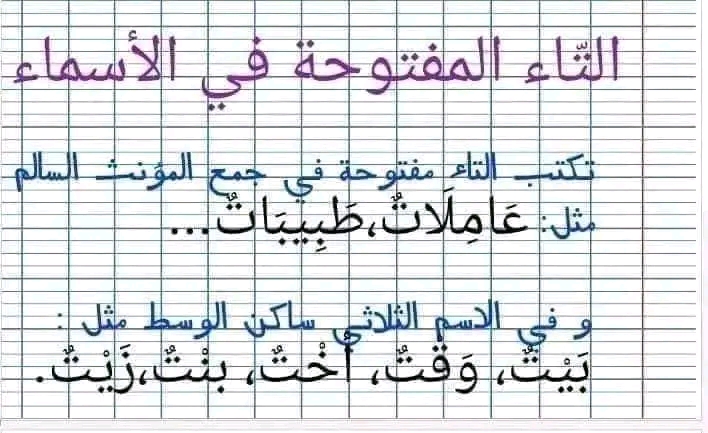 التّاء المفتوحة في الأسماء
تكتب التاء مفتوحة في جمع المؤنث السالم
مثل: عَامِلَاتٌ،طَبِيبَاتٌ...
و في الاسم الثلاثي ساكن الوسط مثل :
بَيْتٌ، وَقْتٌ، أُخْتٌ، بِنْتٌ،زَيْتٌ.